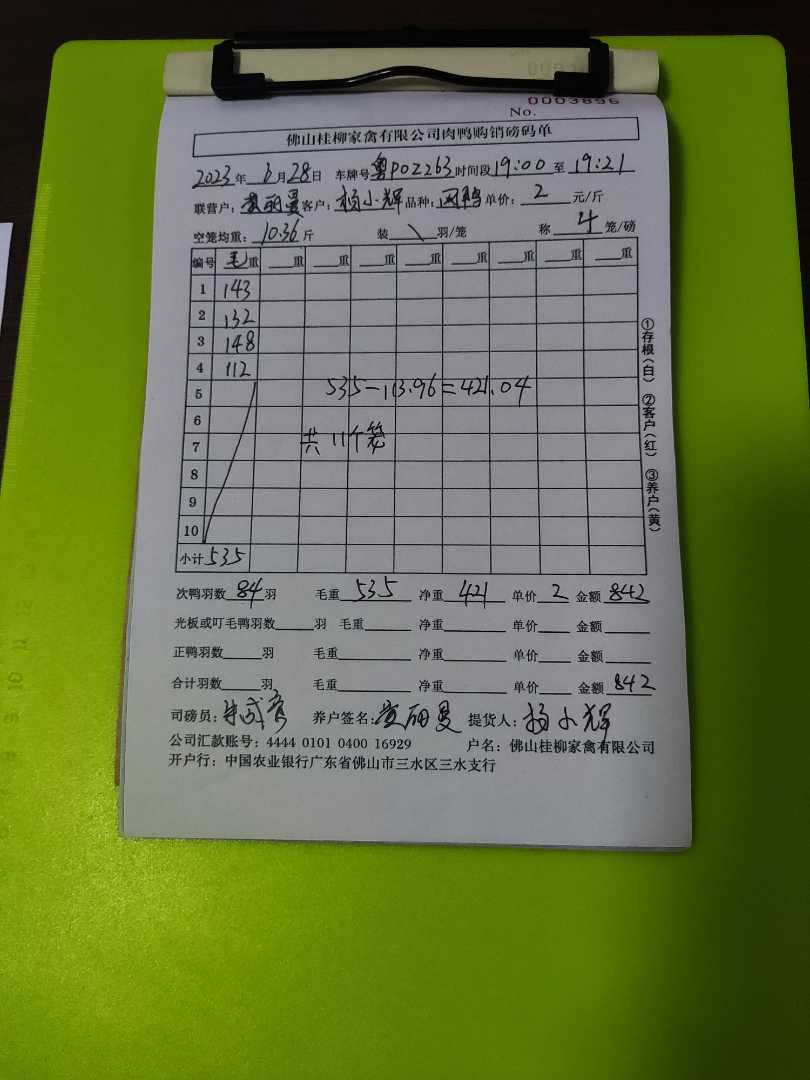 No. 0003896
佛山桂柳家禽有限公司肉鸭购销磅码单
2023年 6月28日 车牌号粤P0Z263时间段19:00至19:21
联营户: 黄丽曼客户: 杨小辉品种: 因鸭单价: 2 元/斤
空笼均重: 10.36斤 装 \ 羽/笼 称 4 笼/磅
编号 毛重 重 重 重 重 重 重 重 重
1 143
2 132
3 148
4 112
5 535-113.96=421.04
6
7 共11个笼
8
9
10
小计535
①存根(白) ②客户(红) ③养户(黄)
次鸭羽数84羽 毛重535 净重421 单价2 金额842
光板或叮毛鸭羽数 羽 毛重 净重 单价 金额
正鸭羽数 羽 毛重 净重 单价 金额
合计羽数 羽 毛重 净重 单价 金额842
司磅员: 养户签名: 黄丽曼 提货人: 杨小辉
公司汇款账号: 4444 0101 0400 16929 户名: 佛山桂柳家禽有限公司
开户行: 中国农业银行广东省佛山市三水区三水支行